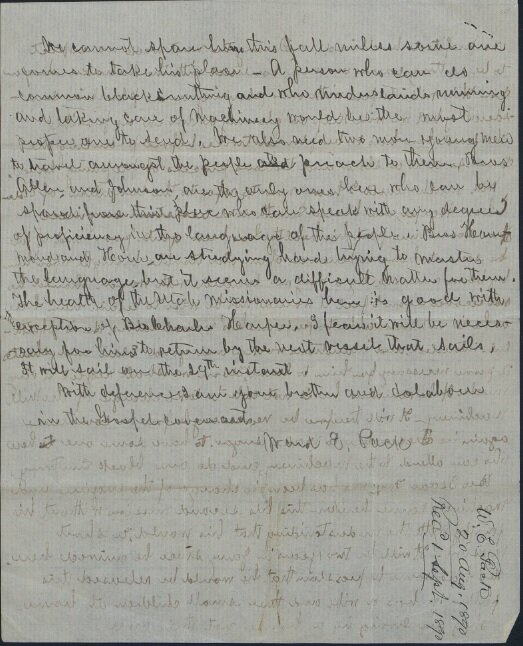 We cannot spare him this fall unless some one
comes to take his place — A person who can do
common blacksmithing and who understands running
and taking care of machinery would be the most
proper one to send. We also need two more young men
to travel amongst the people and preach to them. Bros
Allen and Johnson are the only ones here who can be
spared from this place who can speak with any degree
of proficiency in the language of the people. Bros Ham
mond and Hone are studying hard trying to master
the language but it seems a difficult matter for them.
The health of the Utah missionaries here is good with
exception of Bro Charles Harper. I fear it will be neces-
sary for him to return by the next vessel that sails.
It will sail on the 29th instant
With deference I am your brother and colaborer
in the Gospel covenant
Ward E. Pack
W. E. Pack
20 Aug. 1890
Recd 1 Sept. 1890